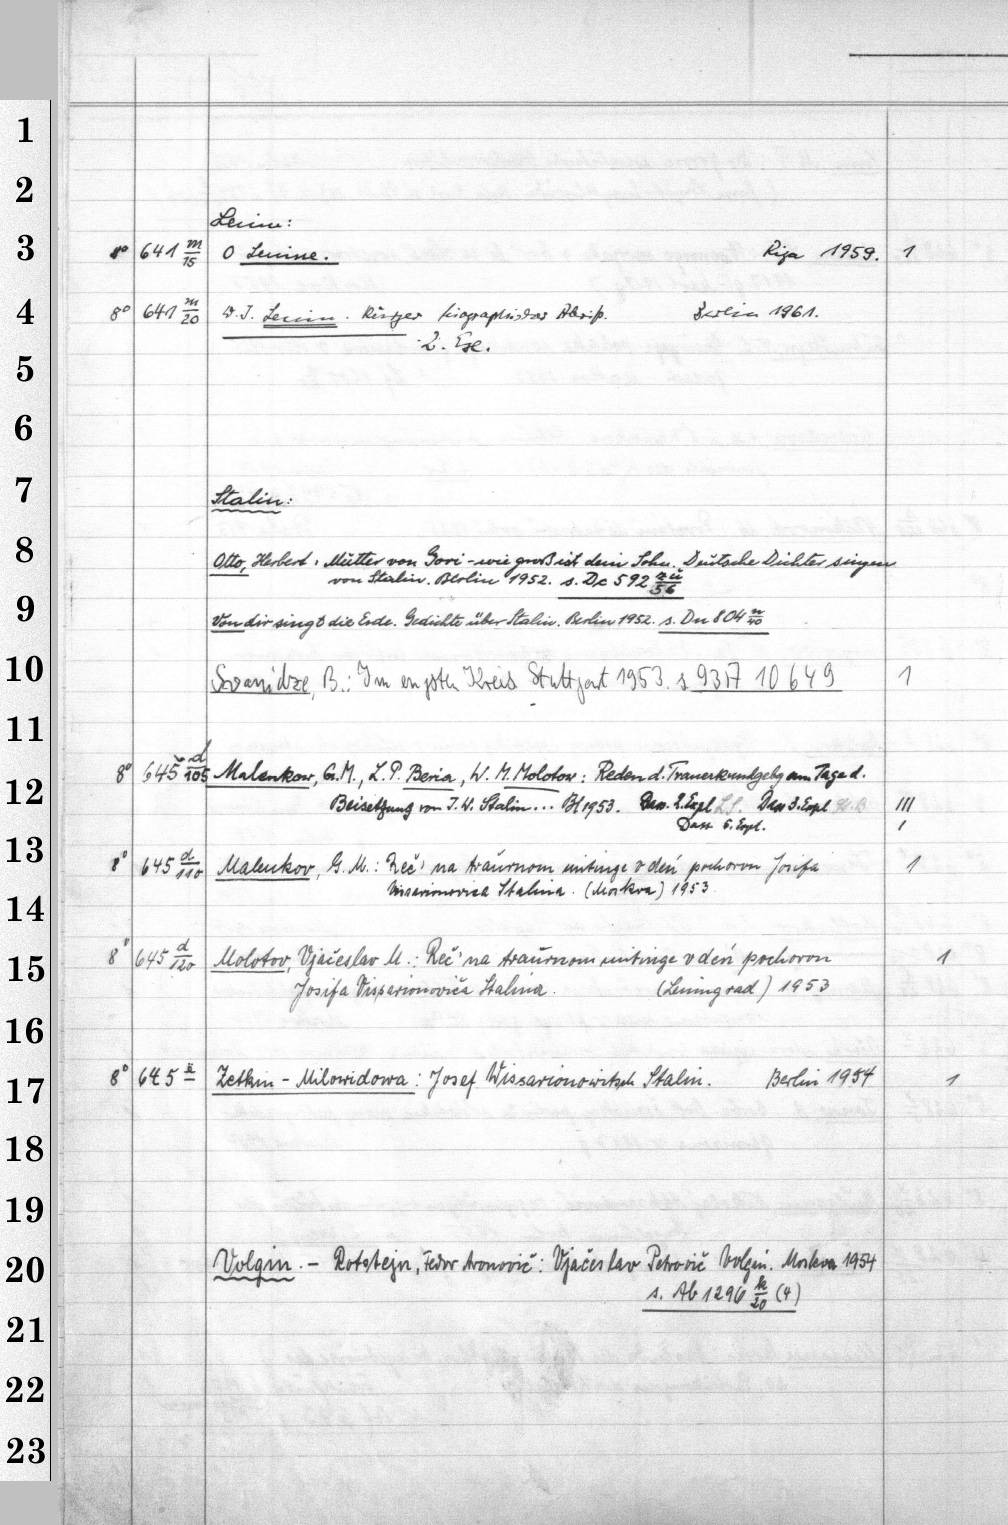 1
2
Lenin:
3 8° 641 m/15 O Lenine. Riga 1959. 1
4 8° 641 m/20 W. I. Lenin. Kurzer biographischer Abriß. Berlin 1961.
2. Exe.
5
6
7
Stalin:
8
Otto, Herbert: Mütter von Gori - wie groß ist dein Sohn. Deutsche Dichter singen
von Stalin. Berlin 1952. s. De 592 zü/56
9
Von dir singt die Erde. Gedichte über Stalin. Berlin 1952. s. Du 804 n/40
10 Svanidze, B.: Im engsten Kreis Stuttgart 1953. s 93A 10 649 1
11
8° 645 d/105 Malenkow, G. M., L. P. Beria, W. M. Molotow: Reden d. Trauerkundgebg am Tage d.
12 Beisetzung von I. W. Stalin... Bl 1953. Dass. 2. Expl Dass 3. Expl III
Dass 6. Expl. I
13 8° 645 d/110 Malenkov, G. M.: Reč' na traurnom mitinge v deń pochoron Josifa 1
Vissarionoviča Stalina. (Moskva) 1953
14
15 8° 645 d/120 Molotov, Vjačeslav M.: Reč' na traurnom mitinge v deń pochoron 1
Josifa Vissarionoviča Stalina. (Leningrad) 1953
16
17 8° 645 Zetkin - Milowidowa: Josef Wissarionowitsch Stalin. Berlin 1954 1
18
19
20 Volgin. - Rotstejn, Fedor Aronovič: Vjačeslav Petrovič Volgin. Moskva 1954
s. Ab 1296 k/20 (4)
21
22
23